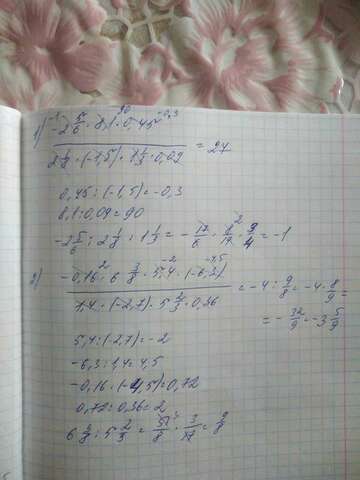 1) -2 5/6 · 8,1 · 0,45
-1 90 -0,3
2 1/8 · (-1,5) · 1 1/3 · 0,09
= 27
0,45 : (-1,5) = -0,3
8,1 : 0,09 = 90
-2 5/6 : 2 1/8 : 1 1/3 = - 17/6 · 8/17 · 3/4 = -1
2) -0,16 · 6 3/8 · 5,4 · (-6,3)
2 -2 -4,5
1,4 · (-2,7) · 5 2/3 · 0,36
= -4 : 9/8 = -4 · 8/9 =
= - 32/9 = -3 5/9
5,4 : (-2,7) = -2
-6,3 : 1,4 = 4,5
-0,16 · (-4,5) = 0,72
0,72 : 0,36 = 2
6 3/8 : 5 2/3 = 51/8 · 3/17 = 9/8